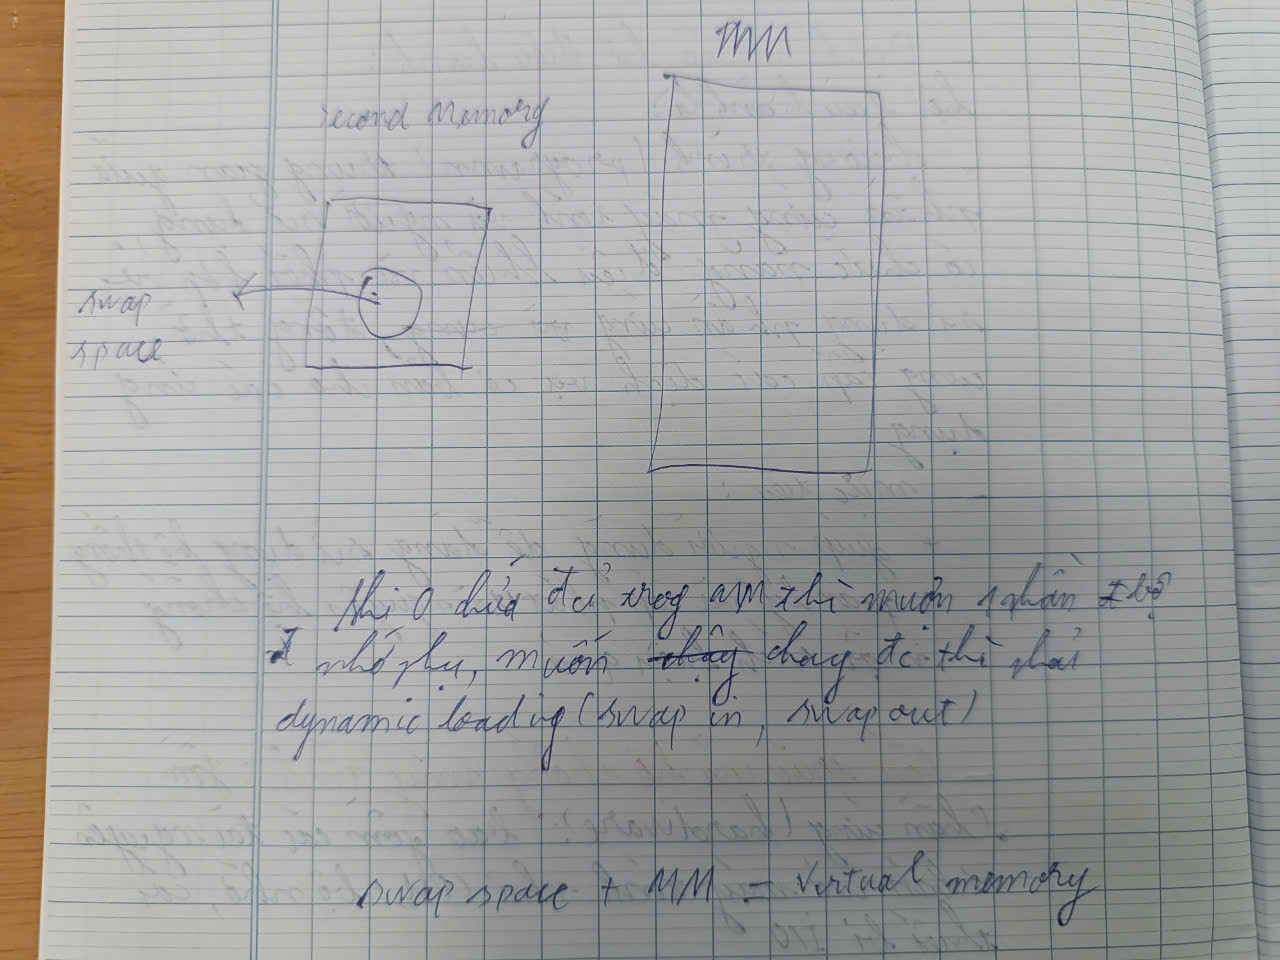 MM
Second Memory
swap
space
khi 0 chứa đủ trog MM thì mượn 1 phần bộ
nhớ phụ, muốn chạy chạy đc thì phải
dynamic loading (swap in, swap out)
swap space + MM = virtual memory